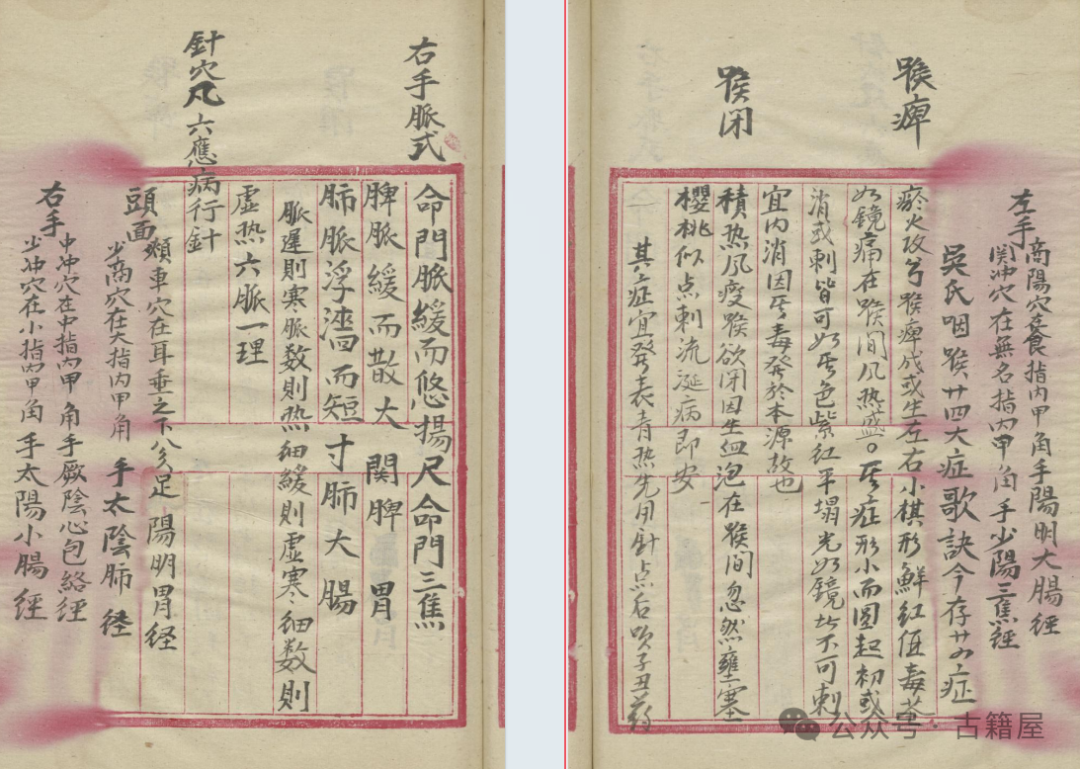 右手脈式
命門脈緩而悠揚尺命門三焦
脾脈緩而散大 関脾 胃
肺脈浮濇而短寸肺大腸
脈遲則寒脈数則热細緩則虛寒細数則
虛热六脈一理
針穴凡六應病行針
頭面
頰車穴在耳垂之下八分足陽明胃経
少商穴在大指内甲角手太陰肺経
右手
中冲穴在中指内甲角手厥陰心包絡経
少冲穴在小指内甲角手太陽小腸経
左手
商陽穴在食指内甲角手陽明大腸経
関冲穴在無名指内甲角手少陽三焦経
吳氏咽喉廿四大症歌訣今存廿四症
喉痺
瘀火攻兮喉痺成或生左右小棋形鮮红
如镜痛在喉间风热盛。其症形小而圆起初或
消或刺皆可如其色紫红平塌光如鏡此不可刺
宜内消因其毒發於本源故也
喉闭
積热风痰喉欲闭因生血泡在喉间忽然壅塞
櫻桃似点刺流涎病即安
其症宜發表青热先用針点后吹子丑药
公众号·古籍屋